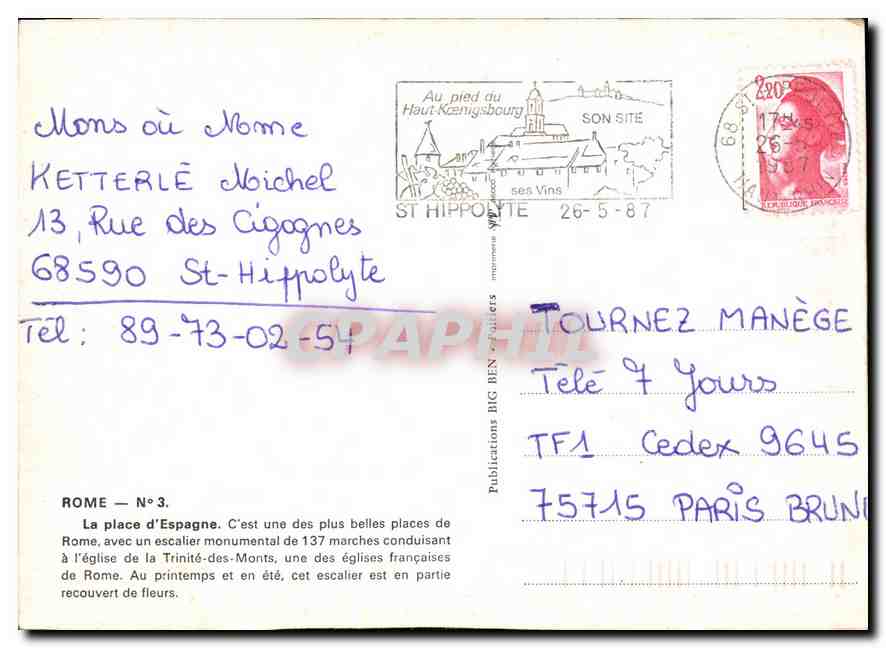 Mons où Mme
KETTERLÉ Michel
13, Rue des Cigognes
68590 St-Hippolyte
Tél: 89-73-02-54
ROME — Nº 3.
La place d'Espagne. C'est une des plus belles places de
Rome, avec un escalier monumental de 137 marches conduisant
à l'église de la Trinité-des-Monts, une des églises françaises
de Rome. Au printemps et en été, cet escalier est en partie
recouvert de fleurs.
Au pied du
Haut-Kœnigsbourg
SON SITE
ses Vins
ST HIPPOLYTE 26-5-87
2,20
68 ST
17H
26-5
1987
REPUBLIQUE FRANÇAISE
Publications BIG BEN • Poitiers imprimerie
CPAPHIL
TOURNEZ MANÈGE
Télé 7 Jours
TF1 Cedex 9645
75715 PARIS BRUN